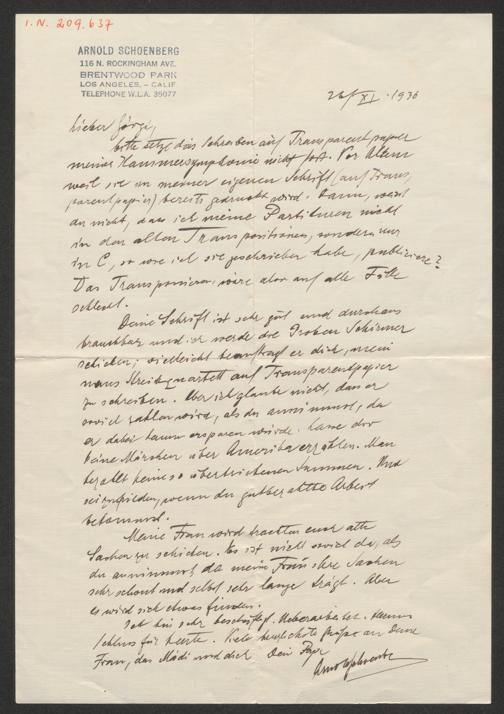 I.N. 209.637
ARNOLD SCHOENBERG
116 N. ROCKINGHAM AVE.
BRENTWOOD PARK
LOS ANGELES, – CALIF
TELEPHONE W.L.A. 35077
26/XI. 1936
Lieber Görgi,
bitte setze das Schreiben auf Transparentpapier
meiner Kammersymphonie nicht fort. Vor Allem
weil sie in meiner eigenen Schrift (auf Trans-
parentpapier) bereits gedruckt wird. Dann, weisst
du nicht, dass ich meine Partituren nicht
in den alten Transpositionen, sondern nur
in C, so wie ich sie geschrieben habe, publiziere?
Das Transponieren wäre also auf alle Fälle
schlecht.
Deine Schrift ist sehr gut und durchaus
brauchbar und ich werde die Proben Schirmer
schicken; vielleicht beauftragt er dich, mein
neues Streichquartett auf Transparentpapier
zu schreiben. Aber ich glaube nicht, dass er
soviel zahlen wird, als du annimmst, da
er dabei kaum ersparen würde. Lasse dir
keine Märchen über Amerika erzählen. Man
bezahlt keine so übertriebenen Summen. Und
sei zufrieden, wenn du gutbezahlte Arbeit
bekommst.
Meine Frau wird trachten euch alte
Sachen zu schicken. Es ist nicht soviel da, als
du annimmst, da meine Frau ihre Sachen
sehr schont und selbst sehr lange trägt. Aber
es wird sich etwas finden.
Ich bin sehr beschäftigt. Ueberarbeitet.
Schluss für heute. Viele herzlichste Grüße an Deine
Frau, das Mädi und dich Dein Papa
Arnold Schoenberg